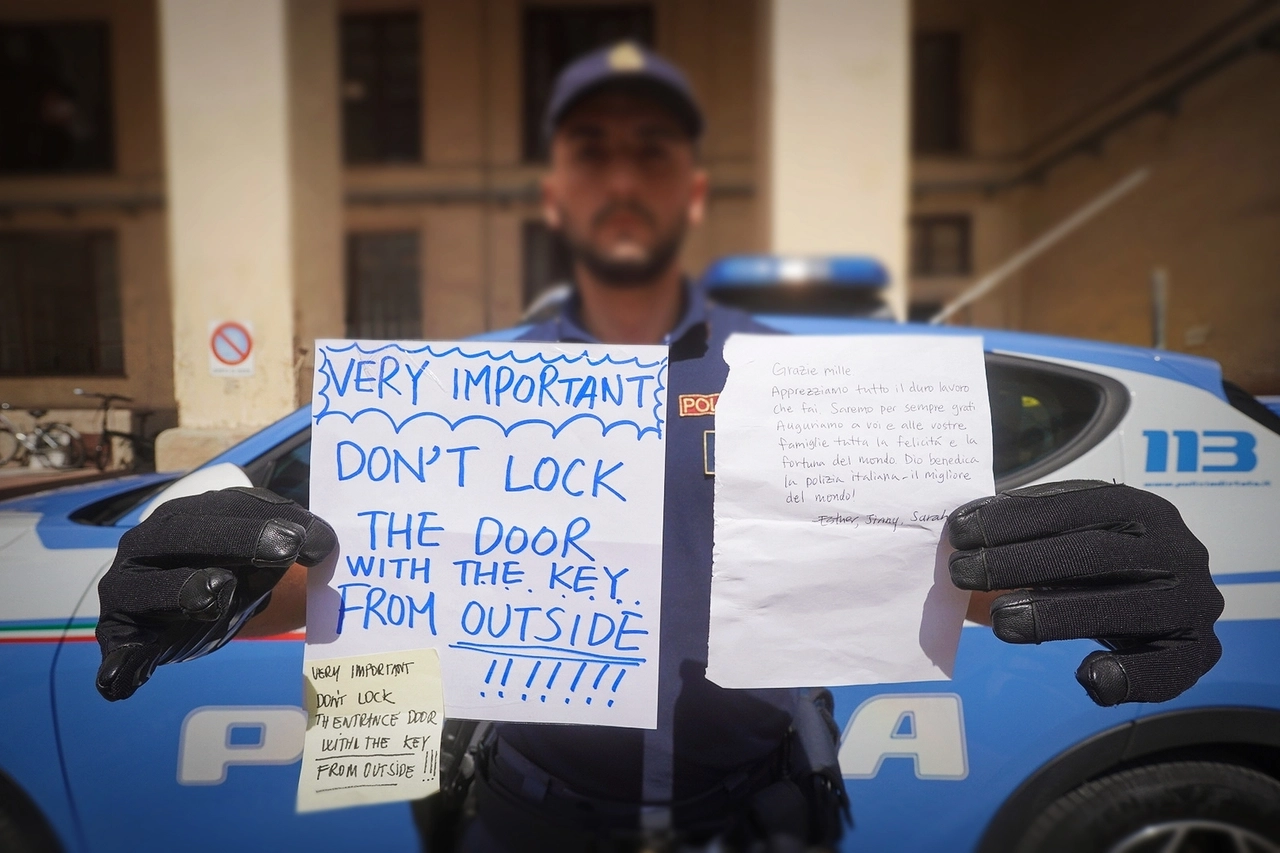 VERY IMPORTANT
DON'T LOCK
THE DOOR
WITH THE KEY
FROM OUTSIDE
!!!!!!!
VERY IMPORTANT
DON'T LOCK
TH ENTRANCE DOOR
WITH THE KEY
FROM OUTSIDE !!!
Grazie mille
Apprezziamo tutto il duro lavoro
che fai. Saremo per sempre grati
Auguriamo a voi e alle vostre
famiglie tutta la felicitá e la
fortuna del mondo. Dio benedica
la polizia italiana - il migliore
del mondo!
Esther, Jinny, Sarah
POL
113
www.poliziadistato.it
P
A